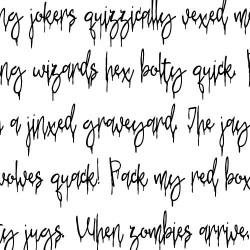 ng jokers quizzically vexed m
ng wizards hex bolty quick.
a jinxed graveyard. The jay
wolves quack! Pack my red box
y jugs. When zombies arrive